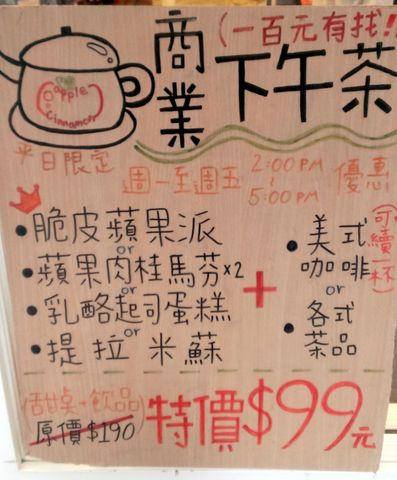 (一百元有找!!
商業
下午茶
apple
cinnamon
平日限定
週一至週五
2:00PM
~
5:00PM
優惠
•脆皮蘋果派
or
•蘋果肉桂馬芬×2
or
•乳酪起司蛋糕
or
•提拉米蘇
+
•美式咖啡
(可續一杯)
or
•各式茶品
(甜桌+飲品)
原價$190
特價$99元